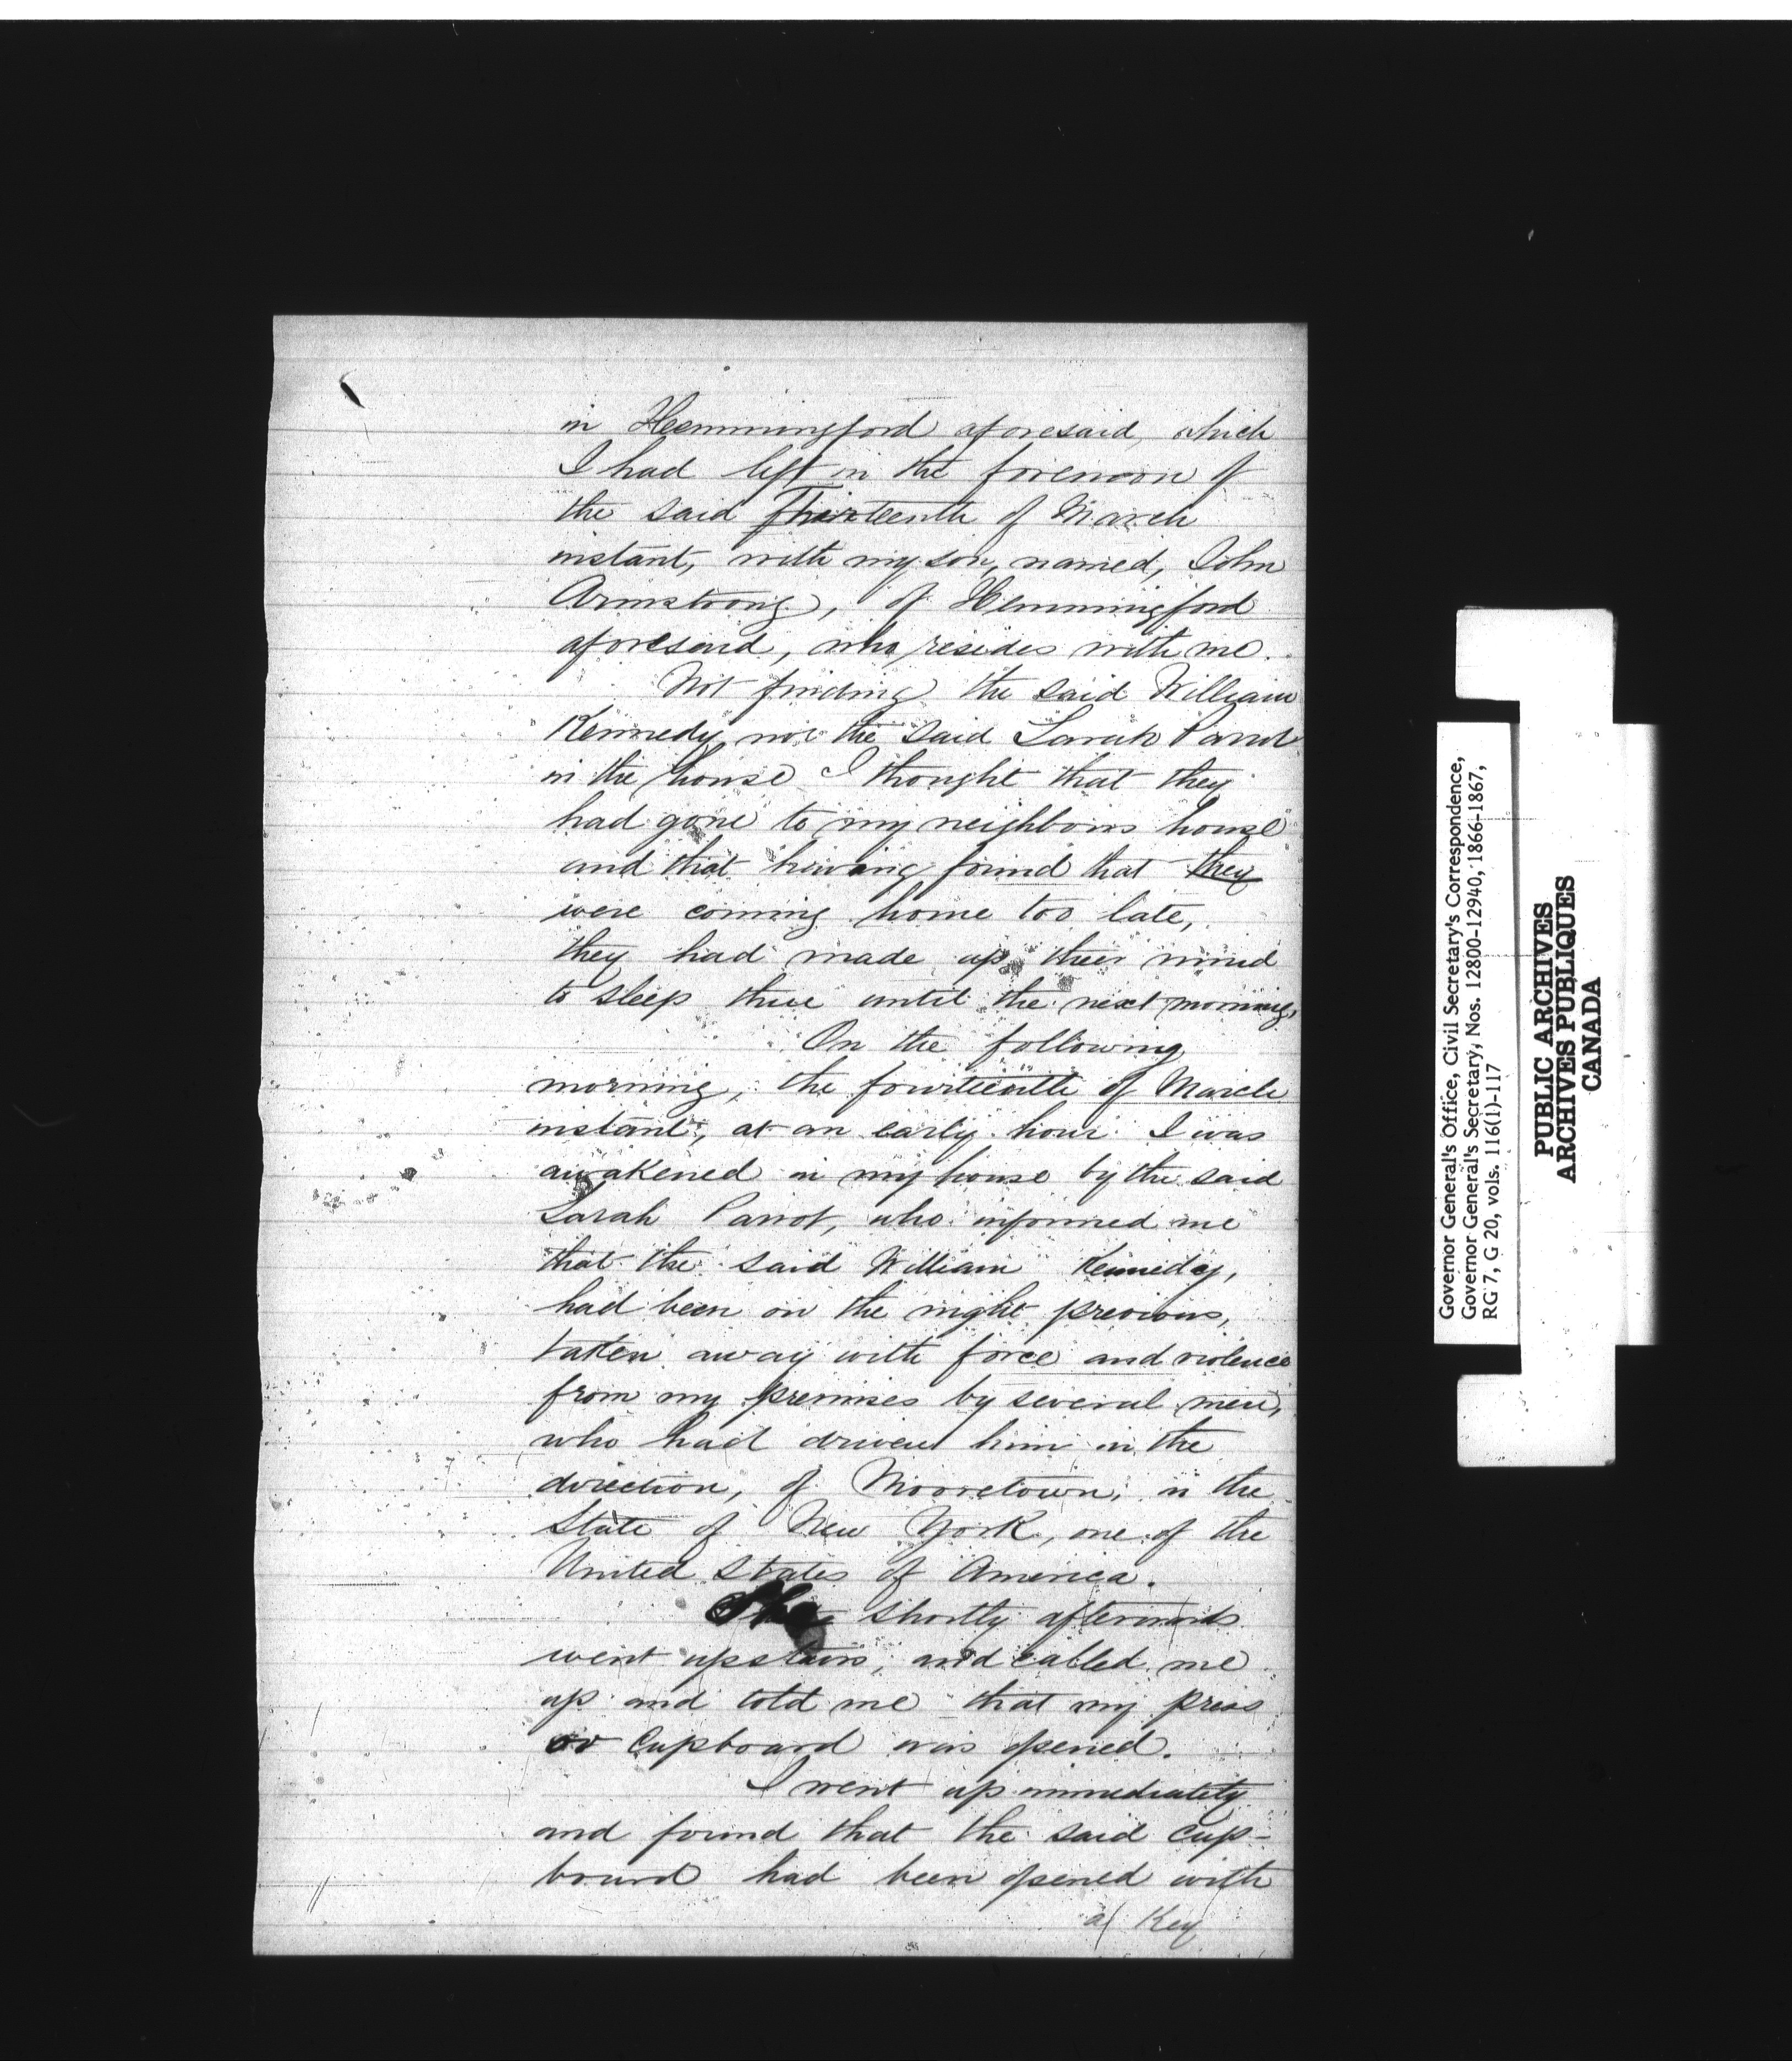 in Hemmingford aforesaid, which
I had left in the forenoon of
the said Thirteenth of March
instant, with my son, named, John
Armstrong, of Hemmingford
aforesaid, who resides with me.
Not finding the said William
Kennedy nor the said Sarah Parrot
in the house I thought that they
had gone to my neighbours house
and that having found that they
were coming home too late,
they had made up their mind
to sleep there until the next morning,
On the following
morning, the fourteenth of March
instant, at an early hour I was
awakened in my house by the said
Sarah Parrot, who informed me
that the said William Kennedy,
had been on the night previous,
taken away with force and violence
from my premises by several men,
who had driven him in the
direction, of Mooretown, in the
State of New York, one of the
United States of America.
She shortly afterwards
went upstairs, and called me
up and told me that my press
or Cupboard was opened.
I went up immediately
and found that the said Cup-
board had been opened with
a Key
Governor General's Office, Civil Secretary's Correspondence,
Governor General's Secretary, Nos. 12800-12940, 1866-1867,
RG 7, G 20, vols. 116(1)-117
PUBLIC ARCHIVES
ARCHIVES PUBLIQUES
CANADA